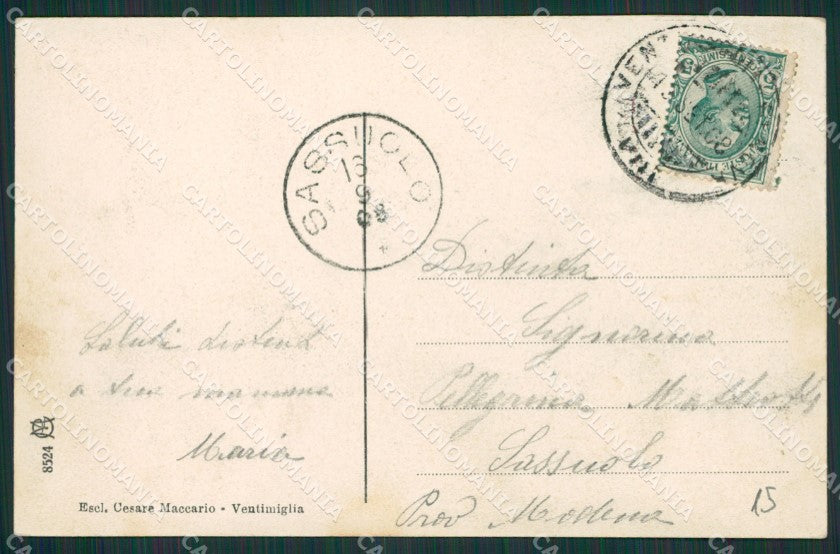 SASSUOLO
16
9
08
Distinta
Signorina
Pellegrina Matteotti
Sassuolo
Prov Modena
Saluti distinti
a sua mamma
Maria
8524
Escl. Cesare Maccario - Ventimiglia
15
CARTOLINOMANIA